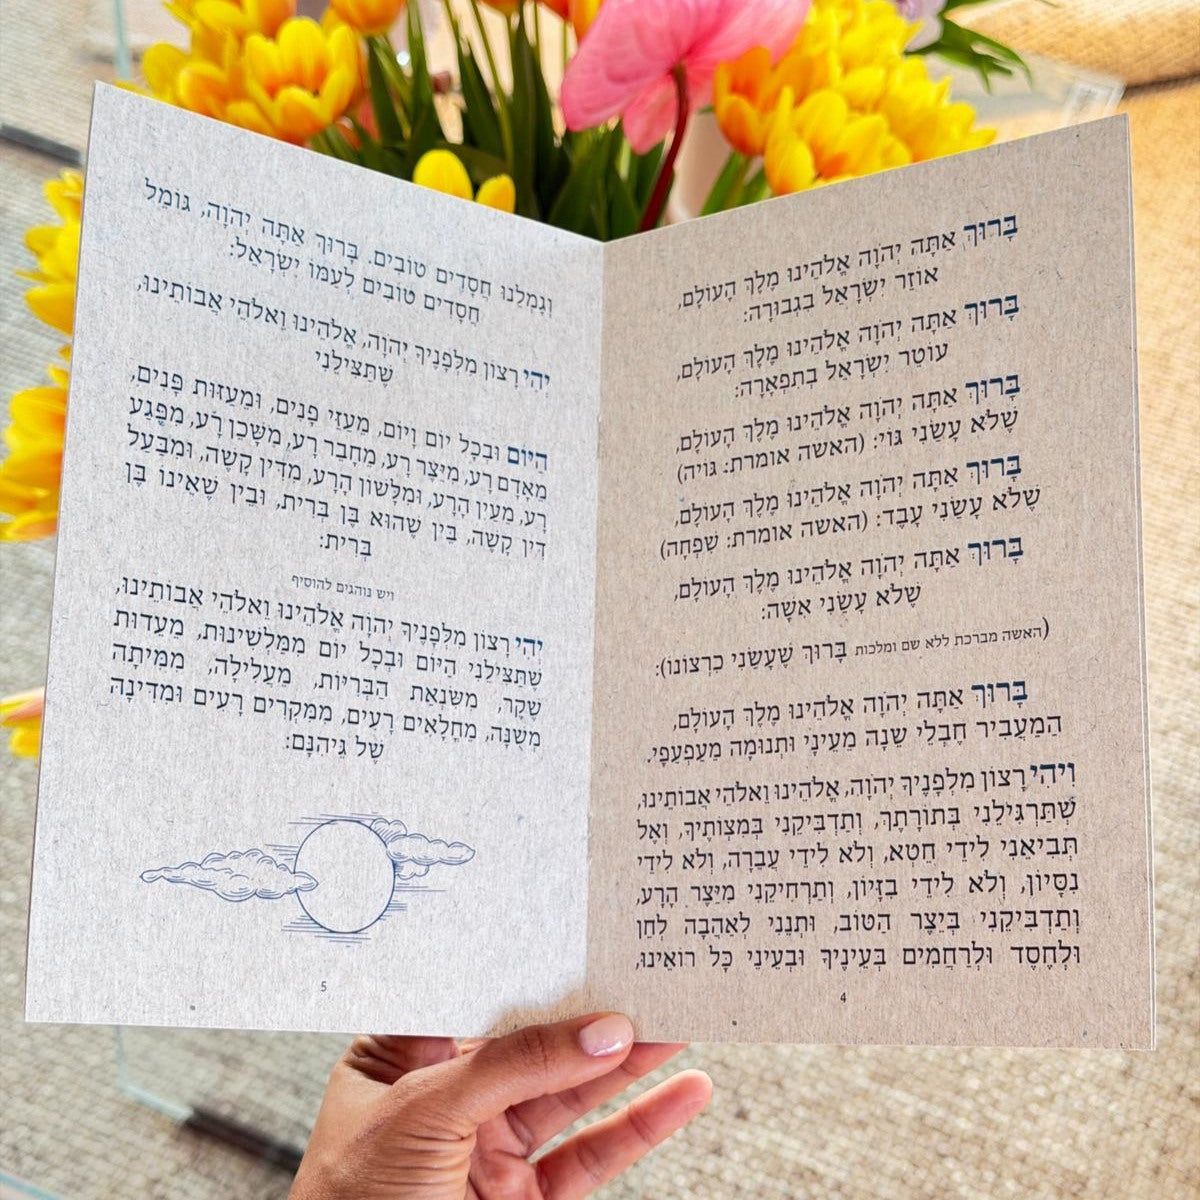 בָּרוּךְ אַתָּה יְהֹוָה אֱלֹהֵינוּ מֶלֶךְ הָעוֹלָם,
אוֹזֵר יִשְׂרָאֵל בִּגְבוּרָה:
בָּרוּךְ אַתָּה יְהֹוָה אֱלֹהֵינוּ מֶלֶךְ הָעוֹלָם,
עוֹטֵר יִשְׂרָאֵל בְּתִפְאָרָה:
בָּרוּךְ אַתָּה יְהֹוָה אֱלֹהֵינוּ מֶלֶךְ הָעוֹלָם,
שֶׁלֹּא עָשַׂנִי גּוֹי: (האשה אומרת: גּוֹיָה)
בָּרוּךְ אַתָּה יְהֹוָה אֱלֹהֵינוּ מֶלֶךְ הָעוֹלָם,
שֶׁלֹּא עָשַׂנִי עָבֶד: (האשה אומרת: שִׁפְחָה)
בָּרוּךְ אַתָּה יְהֹוָה אֱלֹהֵינוּ מֶלֶךְ הָעוֹלָם,
שֶׁלֹּא עָשַׂנִי אִשָּׁה:
(האשה מברכת ללא שם ומלכות בָּרוּךְ שֶׁעָשַׂנִי כִּרְצוֹנוֹ):
בָּרוּךְ אַתָּה יְהֹוָה אֱלֹהֵינוּ מֶלֶךְ הָעוֹלָם,
הַמַּעֲבִיר חֶבְלֵי שֵׁנָה מֵעֵינָי וּתְנוּמָה מֵעַפְעַפָּי.
וִיהִי רָצוֹן מִלְּפָנֶיךָ יְהֹוָה, אֱלֹהֵינוּ וֵאלֹהֵי אֲבוֹתֵינוּ,
שֶׁתַּרְגִּילֵנִי בְּתוֹרָתֶךָ, וְתַדְבִּיקֵנִי בְּמִצְוֹתֶיךָ, וְאַל
תְּבִיאֵנִי לִידֵי חֵטְא, וְלֹא לִידֵי עֲבֵרָה, וְלֹא לִידֵי
נִסָּיוֹן, וְלֹא לִידֵי בִזָּיוֹן, וְתַרְחִיקֵנִי מִיֵּצֶר הָרָע,
וְתַדְבִּיקֵנִי בְּיֵצֶר הַטּוֹב, וּתְנֵנִי לְאַהֲבָה לְחֵן
וּלְחֶסֶד וּלְרַחֲמִים בְּעֵינֶיךָ וּבְעֵינֵי כָּל רוֹאֵינוּ,
4
וְגָמְלֵנוּ חֲסָדִים טוֹבִים. בָּרוּךְ אַתָּה יְהֹוָה, גּוֹמֵל
חֲסָדִים טוֹבִים לְעַמּוֹ יִשְׂרָאֵל:
יְהִי רָצוֹן מִלְּפָנֶיךָ יְהֹוָה, אֱלֹהֵינוּ וֵאלֹהֵי אֲבוֹתֵינוּ,
שֶׁתַּצִּילֵנִי
הַיּוֹם וּבְכָל יוֹם וָיוֹם, מֵעַזֵּי פָנִים, וּמֵעַזּוּת פָּנִים,
מֵאָדָם רָע, מִיֵּצֶר רָע, מֵחָבֵר רָע, מִשָּׁכֵן רָע, מִפֶּגַע
רָע, מֵעַיִן הָרָע, וּמִלָּשׁוֹן הָרָע, מִדִּין קָשֶׁה, וּמִבַּעַל
דִּין קָשֶׁה, בֵּין שֶׁהוּא בֶן בְּרִית, וּבֵין שֶׁאֵינוֹ בֶן
בְּרִית:
ויש נוהגים להוסיף
יְהִי רָצוֹן מִלְּפָנֶיךָ יְהֹוָה אֱלֹהֵינוּ וֵאלֹהֵי אֲבוֹתֵינוּ,
שֶׁתַּצִּילֵנִי הַיּוֹם וּבְכָל יוֹם מִמַּלְשִׁינוּת, מֵעֵדוּת
שֶׁקֶר, מִשִּׂנְאַת הַבְּרִיּוֹת, מֵעֲלִילָה, מִמִּיתָה
מְשֻׁנָּה, מֵחֳלָאִים רָעִים, מִמִּקְרִים רָעִים וּמִדִּינָהּ
שֶׁל גֵּיהִנָּם:
5